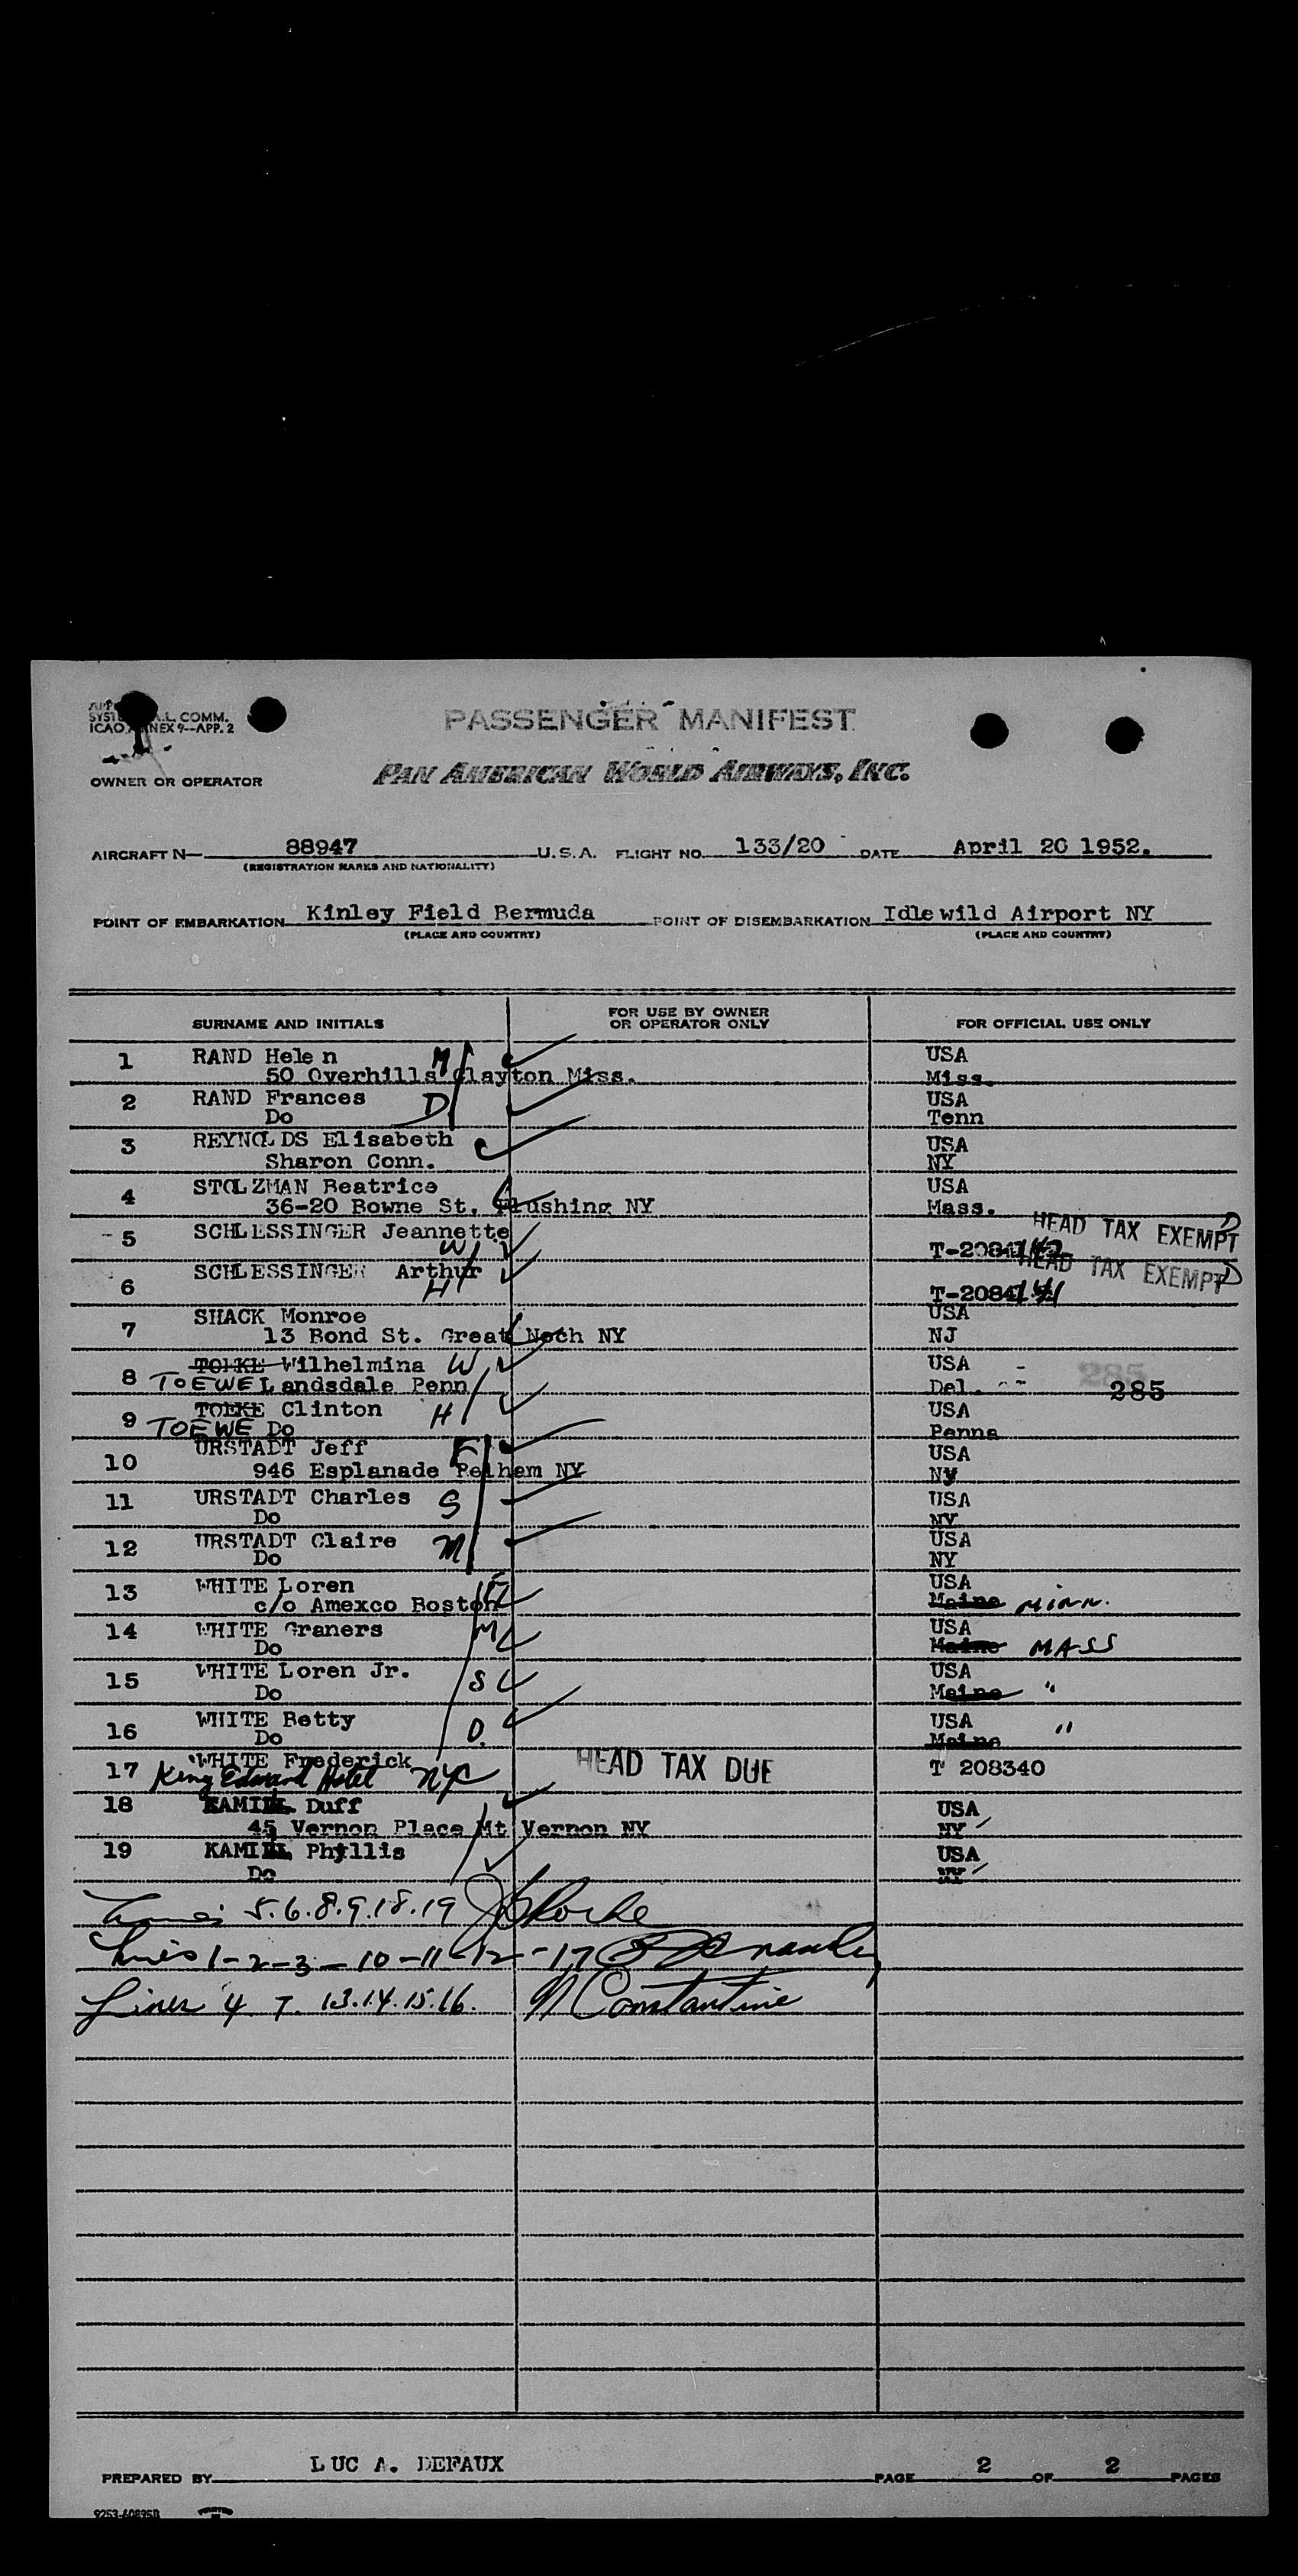 L. COMM.
ICAO ANNEX 9—APP. 2
PASSENGER MANIFEST
OWNER OR OPERATOR PAN AMERICAN WORLD AIRWAYS, INC.
AIRCRAFT N— 88947 U.S.A. FLIGHT NO. 133/20 DATE April 20 1952.
(REGISTRATION MARKS AND NATIONALITY)
POINT OF EMBARKATION Kinley Field Bermuda POINT OF DISEMBARKATION Idlewild Airport NY
(PLACE AND COUNTRY) (PLACE AND COUNTRY)
SURNAME AND INITIALS FOR USE BY OWNER OR OPERATOR ONLY FOR OFFICIAL USE ONLY
1 RAND Helen M USA
50 Overhills Clayton Miss. Miss.
2 RAND Frances D USA
Do Tenn
3 REYNOLDS Elisabeth USA
Sharon Conn. NY
4 STOLZMAN Beatrice USA
36-20 Bowne St. Flushing NY Mass.
5 SCHLESSINGER Jeannette HEAD TAX EXEMPT
W T-2084
6 SCHLESSINGER Arthur HEAD TAX EXEMPT
H T-2084
7 SHACK Monroe USA
13 Bond St. Great Neck NY NJ
8 TOEKE Wilhelmina W USA
TOEWE Landsdale Penn Del. 285 285
9 TOEKE Clinton H USA
TOEWE Do Penna
10 URSTADT Jeff F USA
946 Esplanade Pelham NY NY
11 URSTADT Charles S USA
Do NY
12 URSTADT Claire M USA
Do NY
13 WHITE Loren F USA
c/o Amexco Boston Maine Minn.
14 WHITE Graners M USA
Do Maine MASS
15 WHITE Loren Jr. S USA
Do Maine "
16 WHITE Betty D. USA "
Do Maine
17 WHITE Frederick HEAD TAX DUE T 208340
King Edward Hotel NYC
18 KAMIL Duff USA
45 Vernon Place Mt Vernon NY NY
19 KAMIL Phyllis USA
Do
5.6.8.9.18.19
Lines 1-2-3-10-11-12-17
Lines 4 7. 13.14.15.16. N Constantine
PREPARED BY LUC A. DEFAUX PAGE 2 OF 2 PAGES
9253-60895B